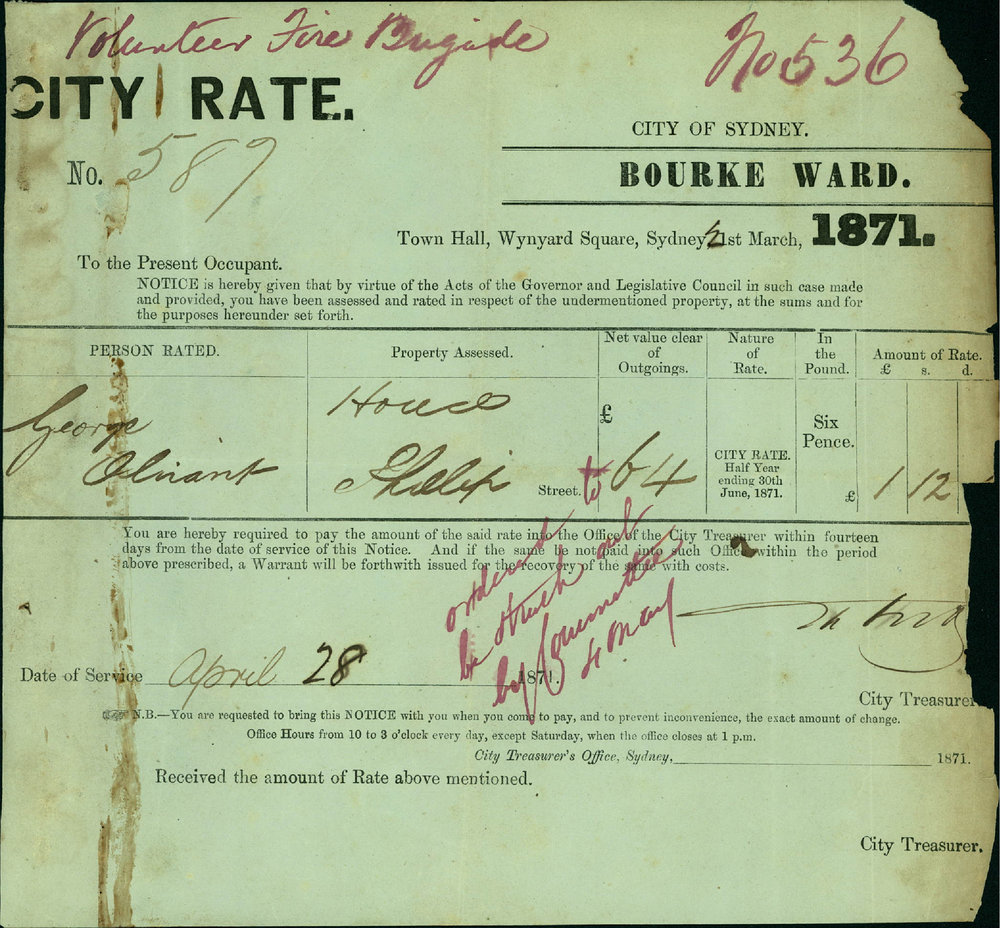 Volunteer Fire Brigade
No 536
CITY RATE.
No. 589
CITY OF SYDNEY.
BOURKE WARD.
Town Hall, Wynyard Square, Sydney, 21st March, 1871.
To the Present Occupant.
NOTICE is hereby given that by virtue of the Acts of the Governor and Legislative Council in such case made
and provided, you have been assessed and rated in respect of the undermentioned property, at the sums and for
the purposes hereunder set forth.
PERSON RATED.
Property Assessed.
Net value clear
of
Outgoings.
Nature
of
Rate.
In
the
Pound.
Amount of Rate.
£ s. d.
George
House
£
64
CITY RATE.
Half Year
ending 30th
June, 1871.
Six
Pence.
£ 1 12
Phillip Street.
You are hereby required to pay the amount of the said rate into the Office of the City Treasurer within fourteen
days from the date of service of this Notice. And if the same be not paid into such Office within the period
above prescribed, a Warrant will be forthwith issued for the recovery of the same with costs.
ordered to
be struck out
by Committee
4 May
Date of Service April 28 1871.
City Treasurer
N.B.—You are requested to bring this NOTICE with you when you come to pay, and to prevent inconvenience, the exact amount of change.
Office Hours from 10 to 3 o'clock every day, except Saturday, when the office closes at 1 p.m.
City Treasurer's Office, Sydney, 1871.
Received the amount of Rate above mentioned.
City Treasurer.